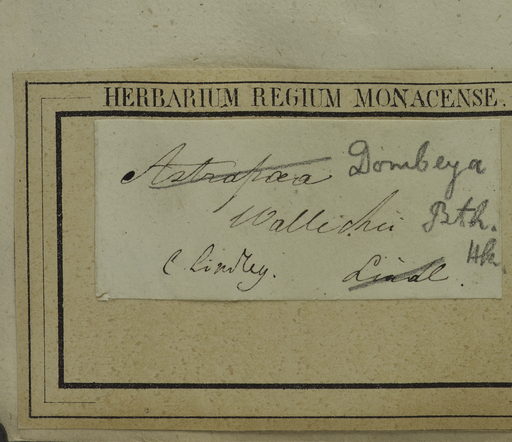 HERBARIUM REGIUM MONACENSE.
Astrapœa Dombeya
Wallichii Bth.
Hk.
C. Lindley. Lindl.